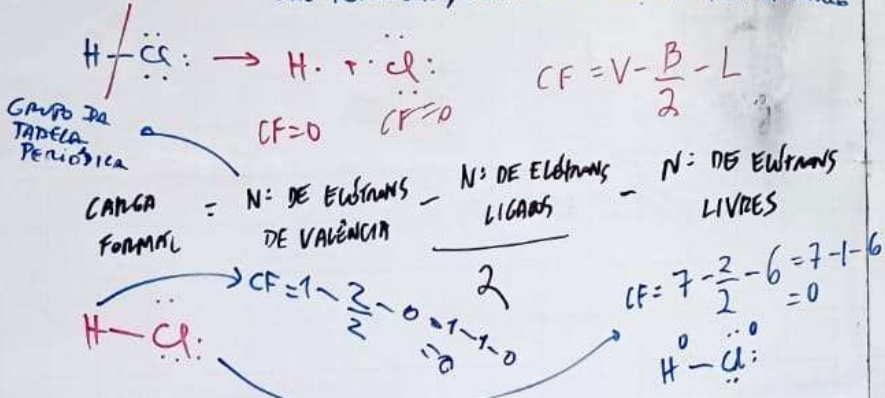 H-Cl: → H. + .Cl: CF = V - B/2 - L
CF=0 CF=0
GRUPO DA
TABELA
PERIÓDICA
CARGA FORMAL = Nº DE ELÉTRONS DE VALÊNCIA - Nº DE ELÉTRONS LIGADOS / 2 - Nº DE ELÉTRONS LIVRES
CF=1-2/2-0=1-1-0
=0
CF=7-2/2-6=7-1-6
=0
H-Cl:
0 0
H-Cl: